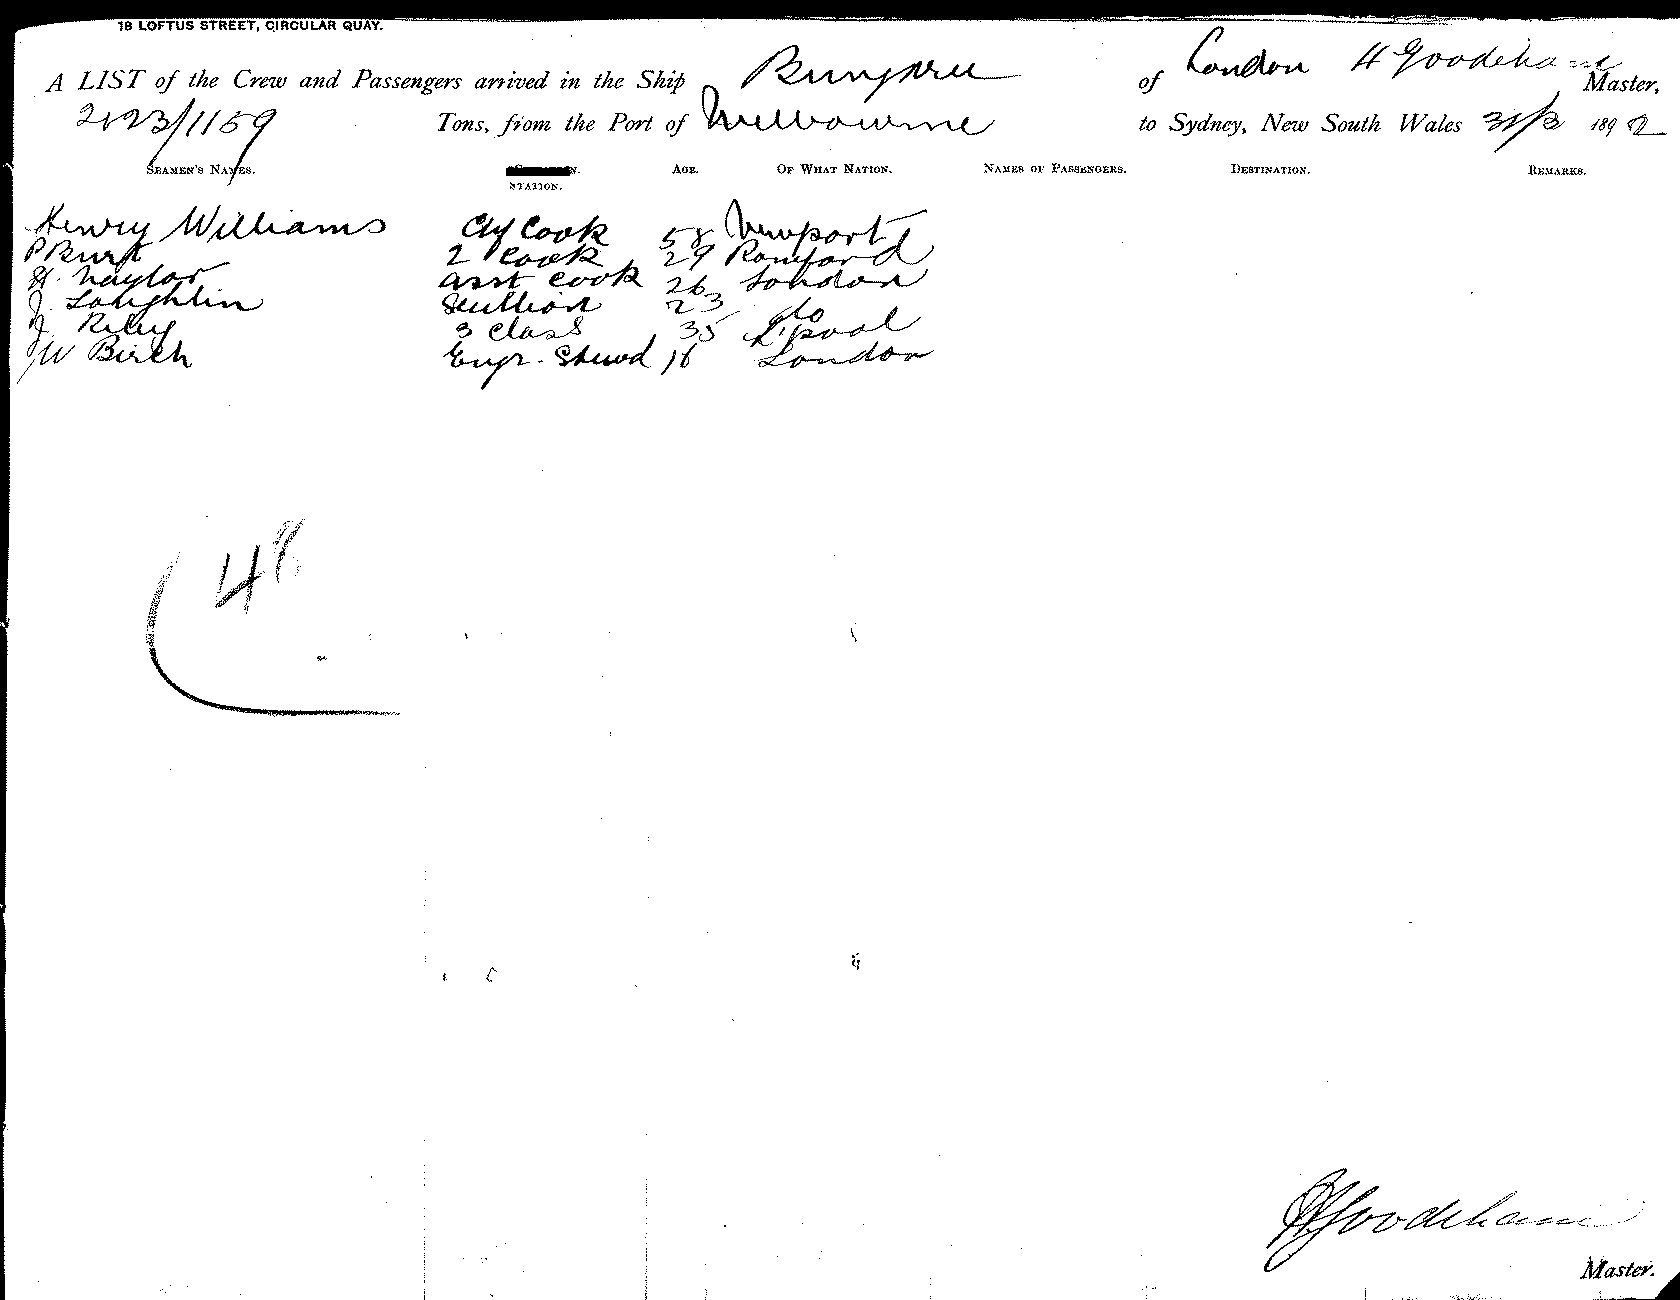 18 LOFTUS STREET, CIRCULAR QUAY.
A LIST of the Crew and Passengers arrived in the Ship Bungaree of London H Goodeham Master,
2823/1159 Tons, from the Port of Melbourne to Sydney, New South Wales 31/3 1892
SEAMEN'S NAMES. STATION. AGE. OF WHAT NATION. NAMES OF PASSENGERS. DESTINATION. REMARKS.
Henry Williams Chf Cook 58 Newport
P Burt 2 Cook 29 Romford
H. Naylor Asst Cook 26 London
J. Loughlin Scullion 23 do
J Riley 3 Class 35 L'pool
JW Birch Engr. Stewd 16 London
48
Goodeham
Master.